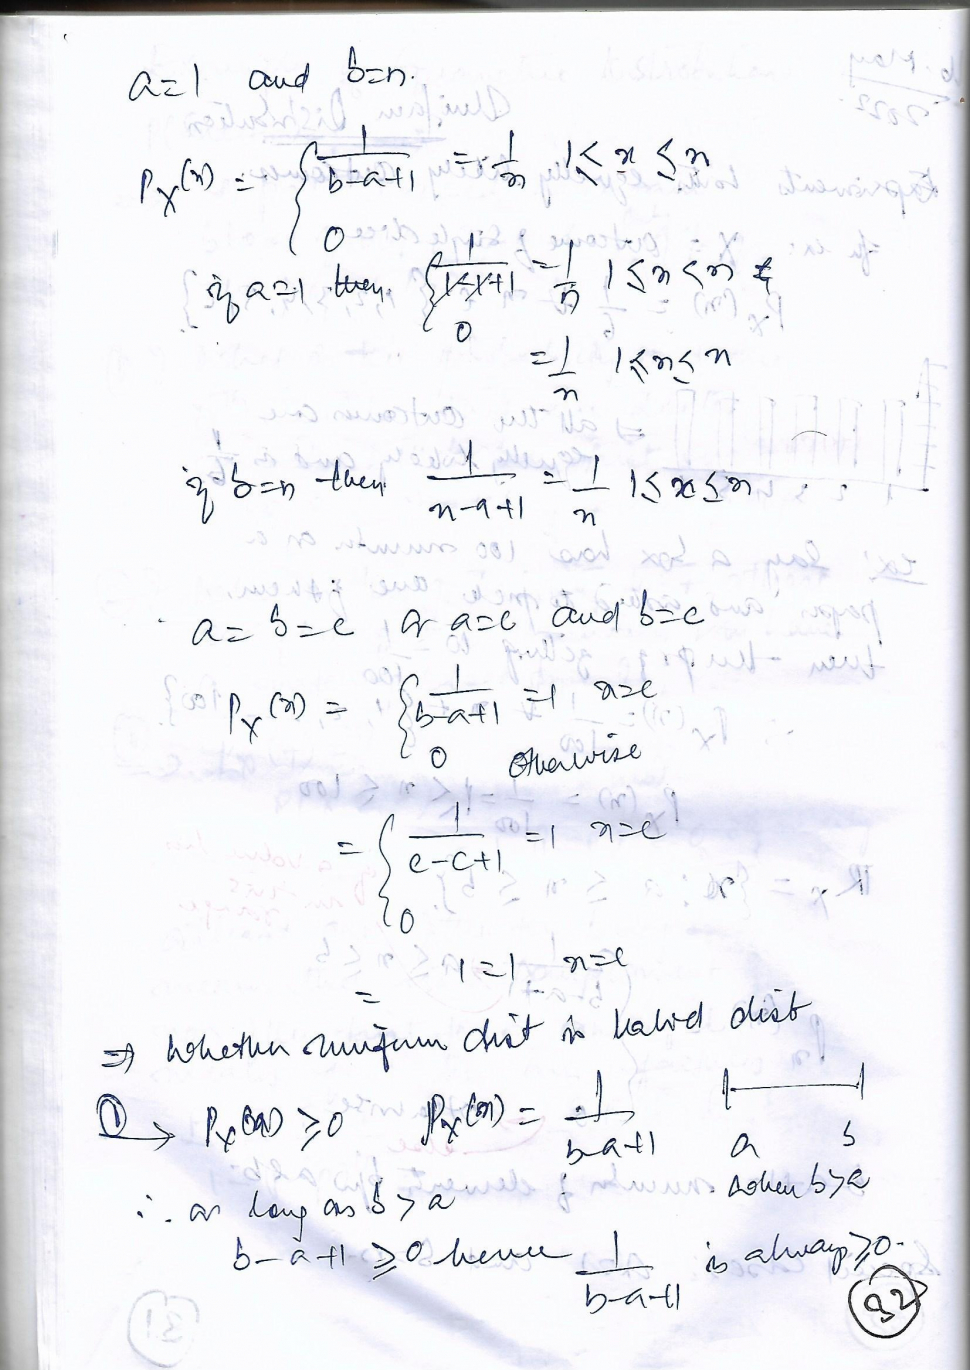 a=1 and b=n.
P_X(x) = { 1/(b-a+1) = 1/n 1≤x≤n
0
if a=1 then { 1/(1-1+1) = 1/n 1≤x≤n
0
= 1/n 1≤x≤n
if b=n then 1/(n-a+1) = 1/n 1≤x≤n
a=b=c or a=c and b=c
P_X(x) = { 1/(b-a+1) =1 x=c
0 otherwise
= { 1/(c-c+1) =1 x=c
0
= 1=1 x=c
⇒ Whether uniform dist is valid dist
① → P_X(x) ≥0 P_X(x) = 1/(b-a+1)
a b
when b>a
∴ as long as b>a
b-a+1 ≥0 hence 1/(b-a+1) is always ≥0.
32